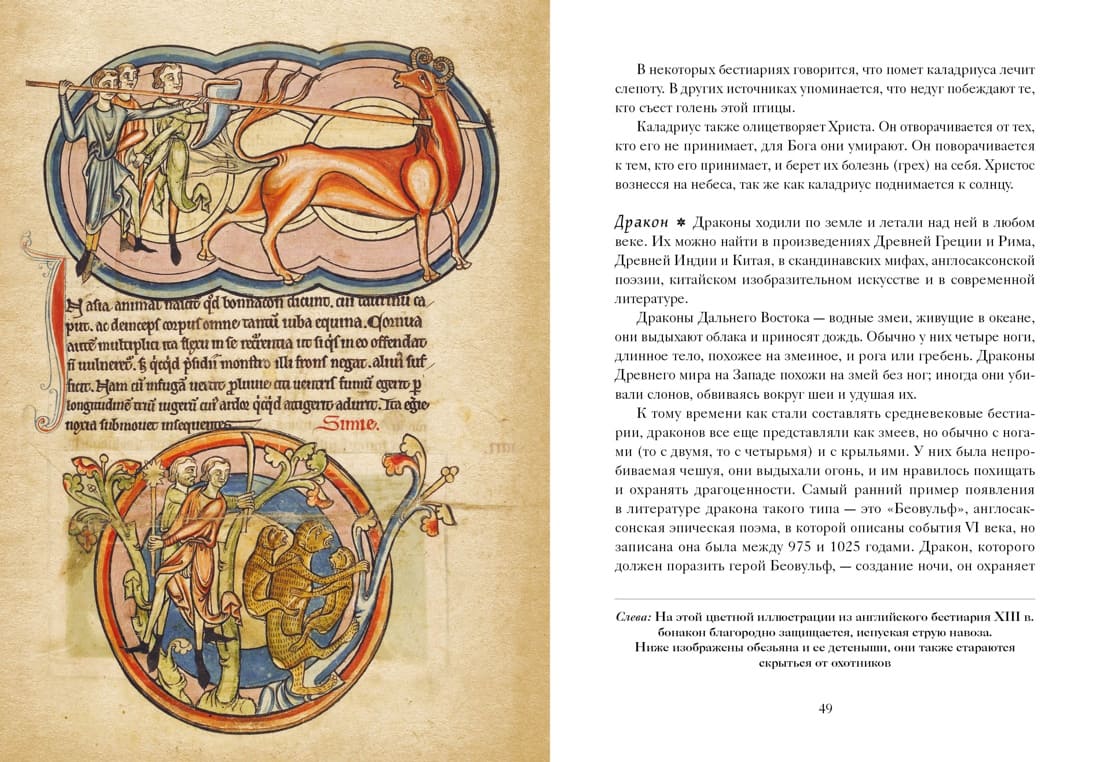 Nasia animal nascit qd bonnacon dicunt. cui taurinu ca
put. ac deinceps corpus omne tantu iuba equina. Cornua
multiplici ita flexu in se ut siqs in eo offendat
n vulneret. monstro illi frons negat. alius suf
ficit. Nam cu
longitudine triu iugeru cui ardor adurit. Ita egie
noxia submovet insequentes.
Simie.
В некоторых бестиариях говорится, что помет каладриуса лечит
слепоту. В других источниках упоминается, что недуг побеждают те,
кто съест голень этой птицы.
Каладриус также олицетворяет Христа. Он отворачивается от тех,
кто его не принимает, для Бога они умирают. Он поворачивается
к тем, кто его принимает, и берет их болезнь (грех) на себя. Христос
вознесся на небеса, так же как каладриус поднимается к солнцу.
Дракон ✵ Драконы ходили по земле и летали над ней в любом
веке. Их можно найти в произведениях Древней Греции и Рима,
Древней Индии и Китая, в скандинавских мифах, англосаксонской
поэзии, китайском изобразительном искусстве и в современной
литературе.
Драконы Дальнего Востока — водные змеи, живущие в океане,
они выдыхают облака и приносят дождь. Обычно у них четыре ноги,
длинное тело, похожее на змеиное, и рога или гребень. Драконы
Древнего мира на Западе похожи на змей без ног; иногда они уби-
вали слонов, обвиваясь вокруг шеи и удушая их.
К тому времени как стали составлять средневековые бестиа-
рии, драконов все еще представляли как змеев, но обычно с нога-
ми (то с двумя, то с четырьмя) и с крыльями. У них была непро-
биваемая чешуя, они выдыхали огонь, и им нравилось похищать
и охранять драгоценности. Самый ранний пример появления
в литературе дракона такого типа — это «Беовульф», англосак-
сонская эпическая поэма, в которой описаны события VI века, но
записана она была между 975 и 1025 годами. Дракон, которого
должен поразить герой Беовульф, — создание ночи, он охраняет
Слева: На этой цветной иллюстрации из английского бестиария XIII в.
бонакон благородно защищается, испуская струю навоза.
Ниже изображены обезьяна и ее детеныши, они также стараются
скрыться от охотников
49